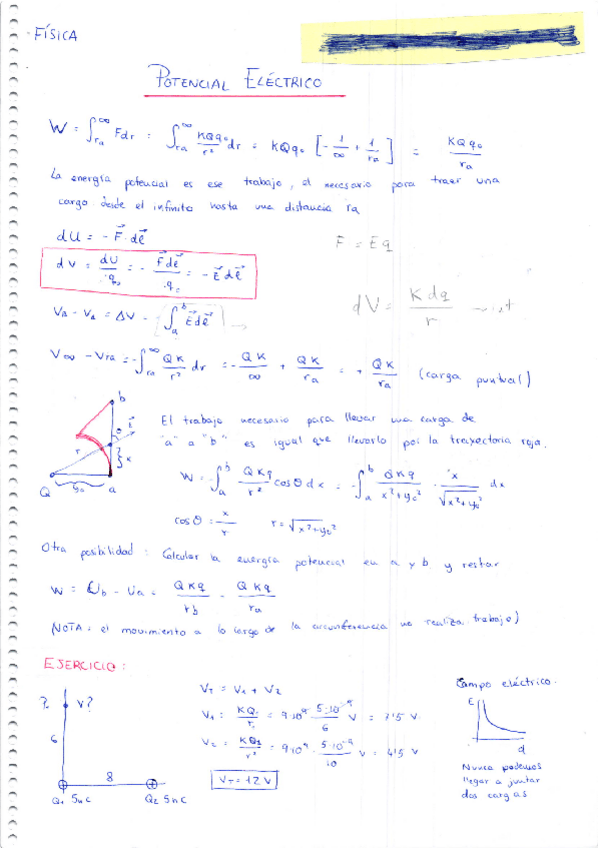 FÍSICA
POTENCIAL ELÉCTRICO
W = ∫_{ra}^{∞} Fdr = ∫_{ra}^{∞} KQq₀/r² dr = KQq₀ [-1/∞ + 1/ra] = KQq₀/ra
La energía potencial es ese trabajo, el necesario para traer una
carga desde el infinito hasta una distancia ra
dU = -F⃗·dℓ⃗
F = Eq
dV = dU/q₀ = -F⃗dℓ⃗/q₀ = -E⃗dℓ⃗
dV = Kdq/r
V_b - V_a = ΔV - ∫_a^b E⃗dℓ⃗ →
V∞ - Vra = -∫_{ra}^{∞} QK/r² dr = -QK/∞ + QK/ra = + QK/ra (carga puntual)
b
El trabajo necesario para llevar una carga de
"a" a "b" es igual que llevarlo por la trayectoria roja.
θ
r
x
Q ya a
W = -∫_a^b QKq/r² cosθ dx = -∫_a^b QKq/x²+y₀² · x/√x²+y₀² dx
cosθ = x/r r = √x²+y₀²
Otra posibilidad: Calcular la energía potencial en a y b y restar
W = U_b - U_a = QKq/rb - QKq/ra
(NOTA: el movimiento a lo largo de la circunferencia no realiza trabajo)
EJERCICIO:
? V?
6
8
Q₁ 5nC Q₂ 5nC
V_T = V₁ + V₂
V₁ = KQ₁/r₁ = 9·10⁹ · 5·10⁻⁹/6 V = 7'5 V
V₂ = KQ₂/r² = 9·10⁹ · 5·10⁻⁹/10 V = 4'5 V
V_T = 12 V
Campo eléctrico.
E
d
Nunca podemos
llegar a juntar
dos cargas